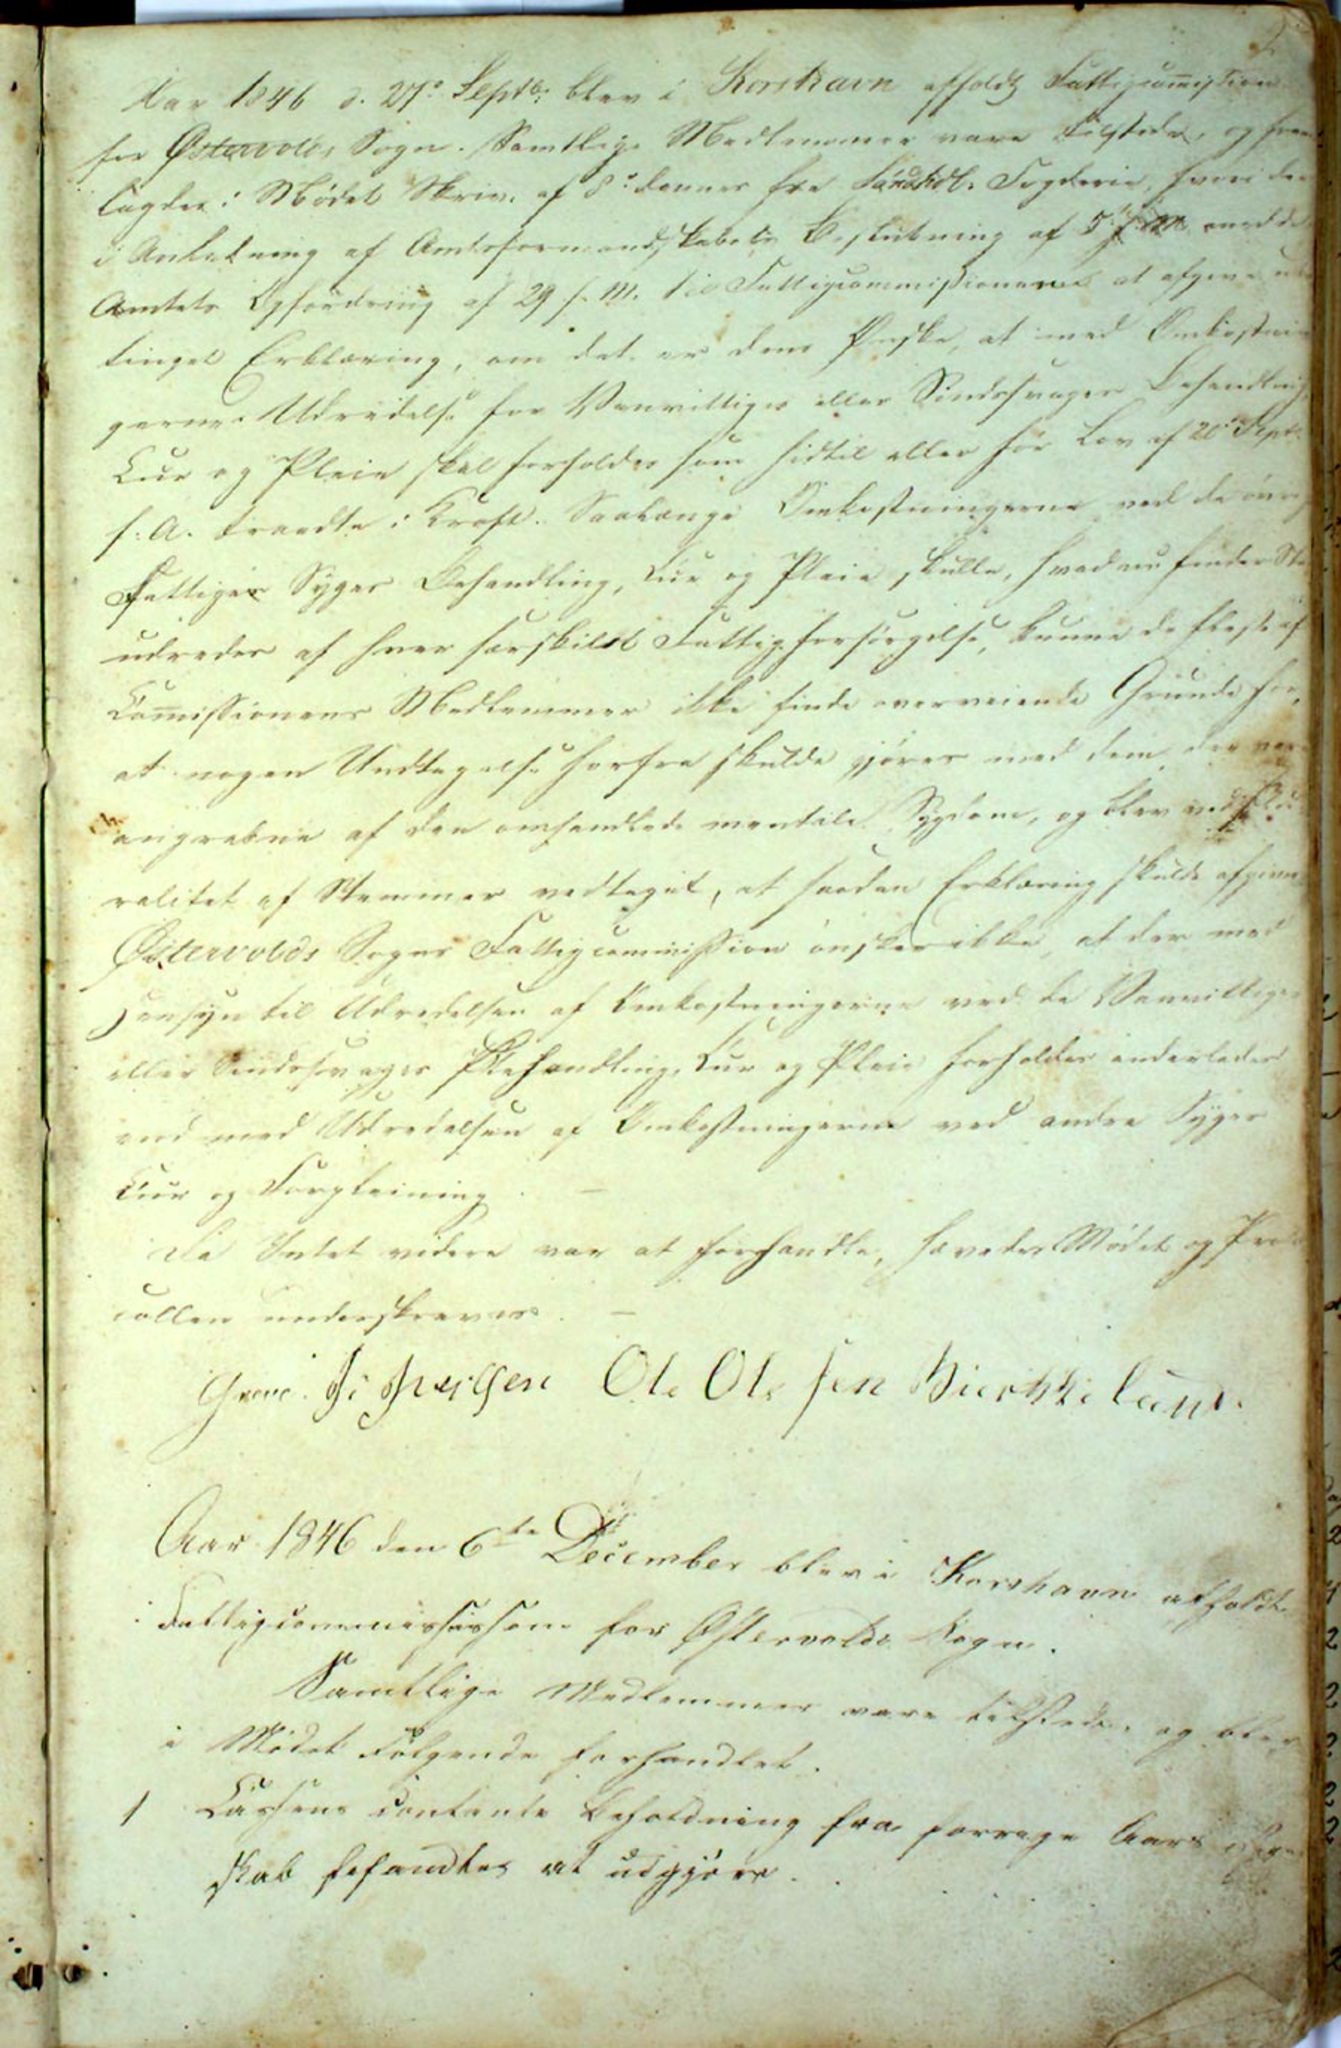 Aar 1846 d. 27de Septbr: blev i Korshavn afholdt Fattigcomission
for Østervolds Sogn. Samtlige Medlemmer vare tilstede, og frem
lagdes i Mødet Skriv. af 8de dennes fra Søndhdl. Fogderie, hvori der
i Anledning af Amtsformandskabets Beslutning af 5 f: M. med
Amtets Opfordring af 29 f. M. til Fattigcommissionerne at afgive
tinget Erklæring, om det er dens Ønske, at med Omkostnin
gernes Udredelse for Vanvittiges eller Sindssvages Behandling,
Cur og Pleie skal forholdes som hidtil eller før Lov af 20de Septr
f: A. traadte i Kraft. Saalænge Omkostningerne ved de øvrige
Fattiges Syges Behandling, Cur og Pleie skulle, hvad nu finder Sted
udredes af hver særskildt Fattigforsørgelse, kunne de fleste af
Comissionens Medlemmer ikke finde overveiende Grunde for,
at nogen Undtagelse herfra skulde gjøres med dem, der vare
angrebne af den omhandlede mentale Sygdom, og blev ved Plu
ralitet af Stemmer vedtaget, at saadan Erklæring skulde afgives
Østervolds Sogns Fattigcommission ønsker ikke, at der med
Hensyn til Udredelsen af Omkostningerne ved de Vanvittiges
eller Sindssvages Behandling, Cur og Pleie forholdes anderledes
end med Udredelsen af Omkostningerne ved andre Syges
Cur og Forpleining. –
Da Intet videre var at forhandle, hævedes Mødet og Proto
collen underskreves. –
Ole Olsen
Aar 1846 den 6te December blev i Korshavn afholdt
Fattigcommissison for Østervolds Sogn.
Samtlige Medlemmer vare tilstede og blev
i Mødet Følgende forhandlet.
1 Cassens contante Beholdning fra forrige Aars Regn
skab befandtes at udgjøre.